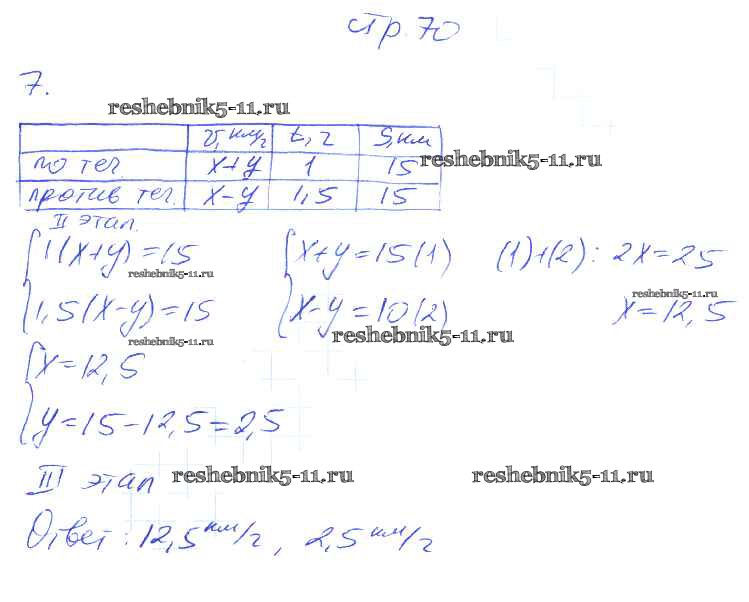 стр. 70
7.
reshebnik5-11.ru
v, км/ч t, ч S, км
по теч x+y 1 15 reshebnik5-11.ru
против теч. x-y 1,5 15
II этап.
1(x+y)=15 x+y=15(1) (1)+(2): 2x=25
reshebnik5-11.ru reshebnik5-11.ru
1,5(x-y)=15 x-y=10(2) x=12,5
reshebnik5-11.ru reshebnik5-11.ru
x=12,5
y=15-12,5=2,5
III этап reshebnik5-11.ru reshebnik5-11.ru
Ответ: 12,5 км/ч, 2,5 км/ч